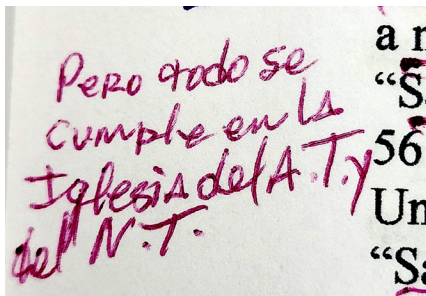 Pero todo se
cumple en la
Iglesia del A.T. y
del N.T.
a
“S
56
Un
“Sa